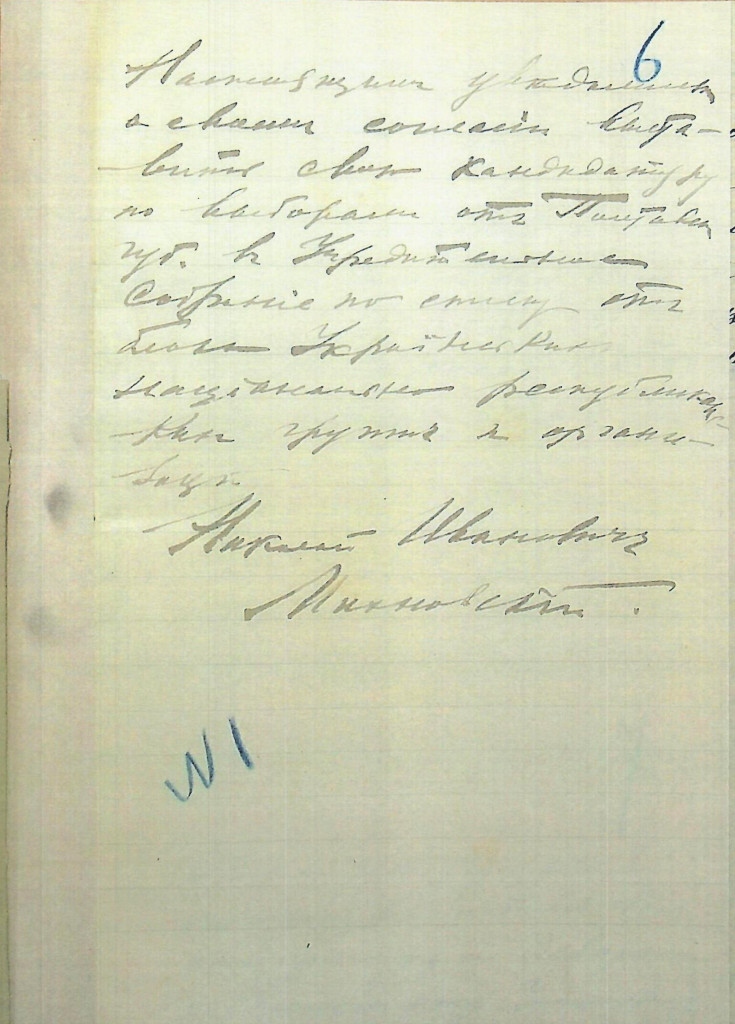 6
Настоящимъ увѣдомляю
о своемъ согласіи выста-
вить свою кандидатуру
по выборамъ отъ Полтавск
губ. въ Учредительное
Собраніе по списку отъ
блока Украинских
національно республикан-
ских группъ и органи-
зацій
Николай Ивановичъ
Михновскій.
N 1